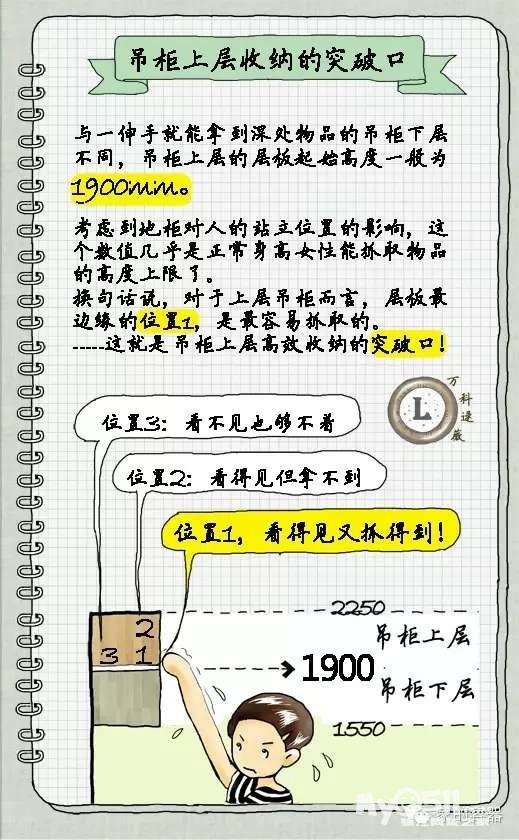 吊柜上层收纳的突破口
与一伸手就能拿到深处物品的吊柜下层
不同，吊柜上层的层板起始高度一般为
1900mm。
考虑到地柜对人的站立位置的影响，这
个数值几乎是正常身高女性能抓取物品
的高度上限了。
换句话说，对于上层吊柜而言，层板最
边缘的位置1，是最容易抓取的。
-----这就是吊柜上层高效收纳的突破口！
L
万科逯薇
位置3：看不见也够不着
位置2：看得见但拿不到
位置1，看得见又抓得到！
2250
2
吊柜上层
3 1
1900
吊柜下层
1550